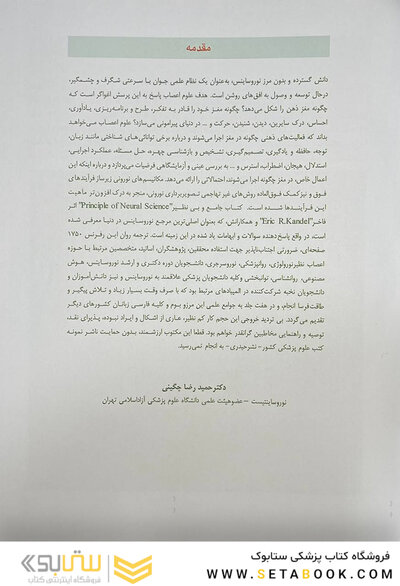 مقدمه
دانش گسترده و بدون مرز نوروساینس، به‌عنوان یک نظام علمی جوان با سرعتی شگرف و چشمگیر،
درحال توسعه و وصول به افق‌های روشن است. هدف علوم اعصاب پاسخ به این پرسش اغواگر است که
چگونه مغز ذهن را شکل می‌دهد؟ چگونه مغز خود را قادر به تفکر، طرح و برنامه‌ریزی، یادآوری،
احساس، درک سایرین، دیدن، شنیدن، حرکت و ... در دنیای پیرامونی می‌سازد؟ علوم اعصاب می‌خواهد
بداند که فعالیت‌های ذهنی چگونه در مغز اجرا می‌شوند و درباره برخی توانائی‌های شناختی مانند زبان،
توجه، حافظه و یادگیری، تصمیم‌گیری، تشخیص و بازشناسی چهره، حل مسئله، عملکرد اجرایی،
استدلال، هیجان، اضطراب، استرس و ... به بررسی عینی و آزمایشگاهی فرضیات می‌پردازد و درباره اینکه این
اعمال خاص، در مغز چگونه اجرا می‌شوند، احتمالاتی را ارائه می‌دهد. مکانیسم‌های نورونی زیرساز فرآیندهای
فوق و نیز کمک فوق‌العاده روش‌های غیر تهاجمی تصویربرداری نورونی، منجر به درک افزون‌تر ماهیت
این فرآیندها شده است. کتاب جامع و بی نظیر "Principle of Neural Science" اثر
فاخر "Eric R.Kandel" و همکارانش، که بعنوان اصلی‌ترین مرجع نوروساینس در دنیا معرفی شده
است، در واقع پاسخ‌دهنده سوالات و ابهامات یاد شده در این زمینه است. ترجمه روان این رفرنس ۱۷۵۰
صفحه‌ای، ضرورتی اجتناب‌ناپذیر جهت استفاده محققین، پژوهشگران، اساتید متخصصین مرتبط با حوزه
اعصاب نظیر نورولوژی، روانپزشکی، نوروسرجری، دانشجویان دوره دکتری و ارشد نوروساینس، هوش
مصنوعی، روانشناسی، توانبخشی وکلیه دانشجویان پزشکی علاقمند به نوروساینس و نیز دانش‌آموزان و
دانشجویان نخبه شرکت‌کننده در المپیادهای مرتبط بود که با صرف وقت بسیار زیاد و تلاش پیگیر و
طاقت‌فرسا انجام، و در هفت جلد به جوامع علمی این مرزو بوم و کلیه فارسی زبانان کشورهای دیگر
تقدیم می‌گردد. بی تردید خروجی این حجم کار کم نظیر، عاری از اشکال و ایراد نبوده، پذیرای نقد،
توصیه و راهنمایی مخاطبین گرانقدر خواهم بود. قطعا این مکتوب ارزشمند، بدون حمایت ناشر نمونه
کتب علوم پزشکی کشور -نشرحیدری- به انجام نمی‌رسید.
دکترحمید رضا چگینی
نوروساینتیست - عضوهیئت علمی دانشگاه علوم پزشکی آزاداسلامی تهران
فروشگاه کتاب پزشکی ستابوک
WWW.SETABOOK.COM
ستابوک
فروشگاه اینترنتی کتاب